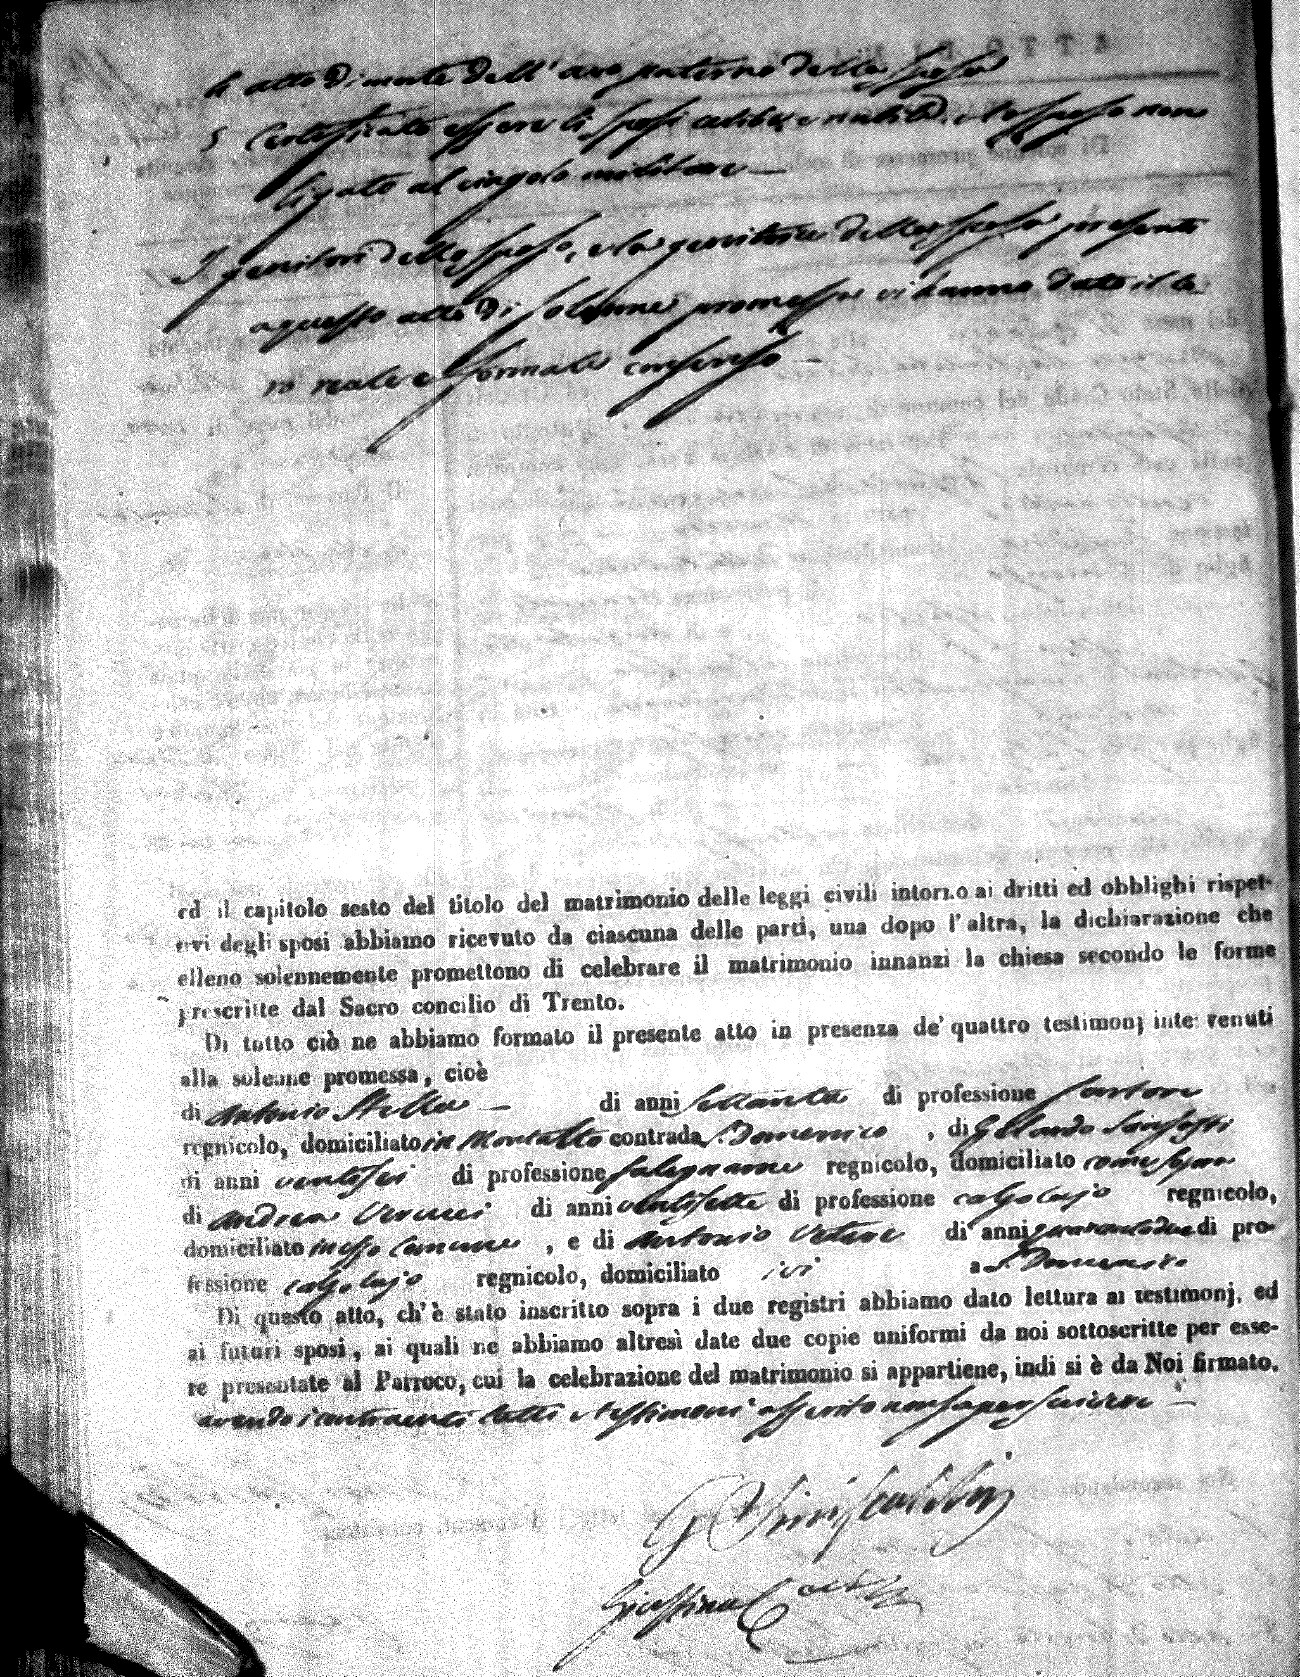 4 atto di morte dell'avo paterno della sposa
5 Certificato essere li sposi celibe e nubile, e lo sposo non
ligato al cingolo militare —
I genitori dello sposo, e la genitrice della sposa presenti
a questo atto di solenne promessa vi hanno dato il lo
ro reale e formale consenso —
ed il capitolo sesto del titolo del matrimonio delle leggi civili intorno ai dritti ed obblighi rispet-
tivi degli sposi abbiamo ricevuto da ciascuna delle parti, una dopo l'altra, la dichiarazione che
elleno solennemente promettono di celebrare il matrimonio innanzi la chiesa secondo le forme
prescritte dal Sacro concilio di Trento.
Di tutto ciò ne abbiamo formato il presente atto in presenza de' quattro testimonj intervenuti
alla solenne promessa, cioè
di Antonio Stella — di anni settanta di professione sartore
regnicolo, domiciliato in Montalto contrada S. Domenico , di
di anni ventisei di professione falegname regnicolo, domiciliato come sopra
di Andrea di anni ventisette di professione calzolajo regnicolo,
domiciliato in esso Comune , e di Antonio di anni quarantadue di pro-
fessione calzolajo regnicolo, domiciliato ivi a S. Domenico
Di questo atto, ch'è stato inscritto sopra i due registri abbiamo dato lettura ai testimonj, ed
ai futuri sposi, ai quali ne abbiamo altresì date due copie uniformi da noi sottoscritte per esse-
re presentate al Parroco, cui la celebrazione del matrimonio si appartiene, indi si è da Noi firmato.
avendo i contraenti tutti e testimoni asserito non saper scrivere —